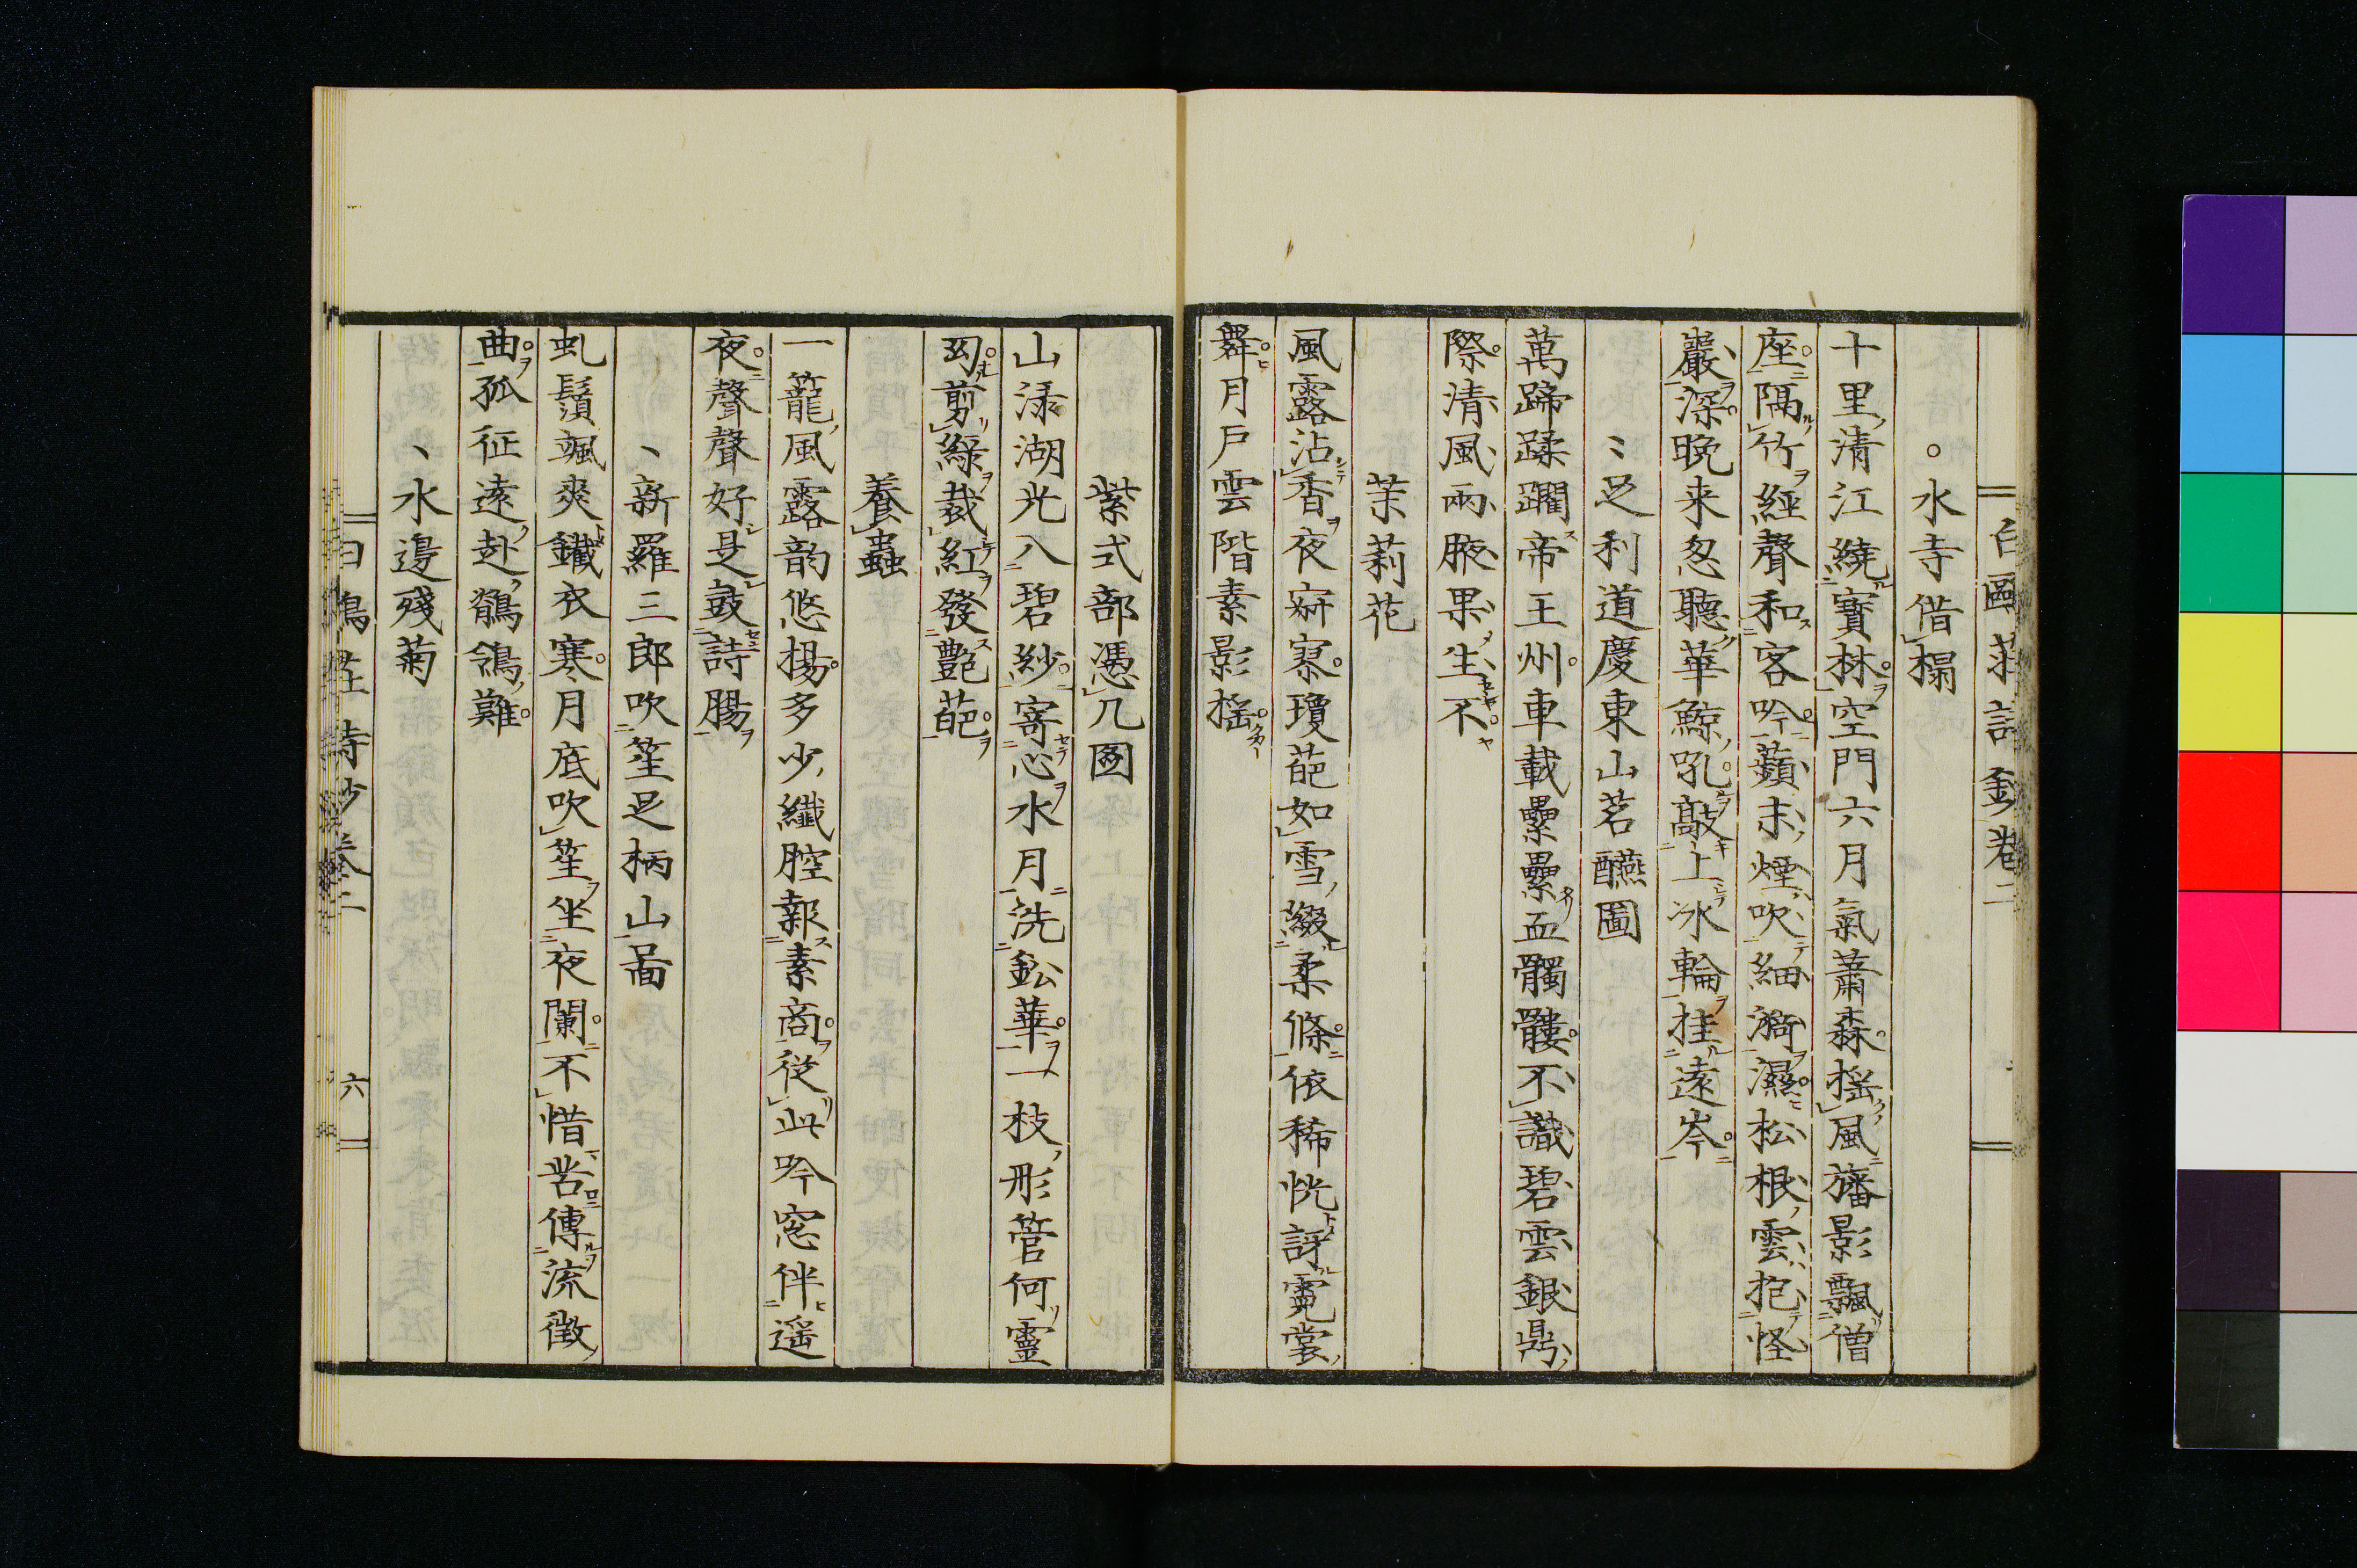 水寺借榻
十里清江繞寶林空門六月氣蕭森揺風旛影飄僧
座隔竹經聲和客吟蘋末煙吹細漪濕松根雲抱怪
巖深晩来忽聽華鯨吼敲上氷輪挂遠岑
足利道慶東山茗醼圖
萬蹄蹂躙帝王州車載纍纍血髑髏不識碧雲銀鼎
際清風兩腋果生不
茉莉花
風露沾香夜寂寥瓊葩如雪綴柔條依稀恍訝霓裳
舞月戸雲階素影揺
紫式部憑几圖
山渌湖光入碧紗寄心水月洗鉛華一枝彤管何靈
幻剪緑裁紅發艷葩
養蟲
一籠風露韵悠揚多少纖腔報素商從此吟窓伴遥
夜聲聲好是鼓詩腸
新羅三郎吹笙足柄山圖
虬鬚颯爽鐵衣寒月底吹笙坐夜闌不惜苦傳流徴
曲孤征遠赴鶺鴒難
水邊殘菊
詩鈔卷二
六